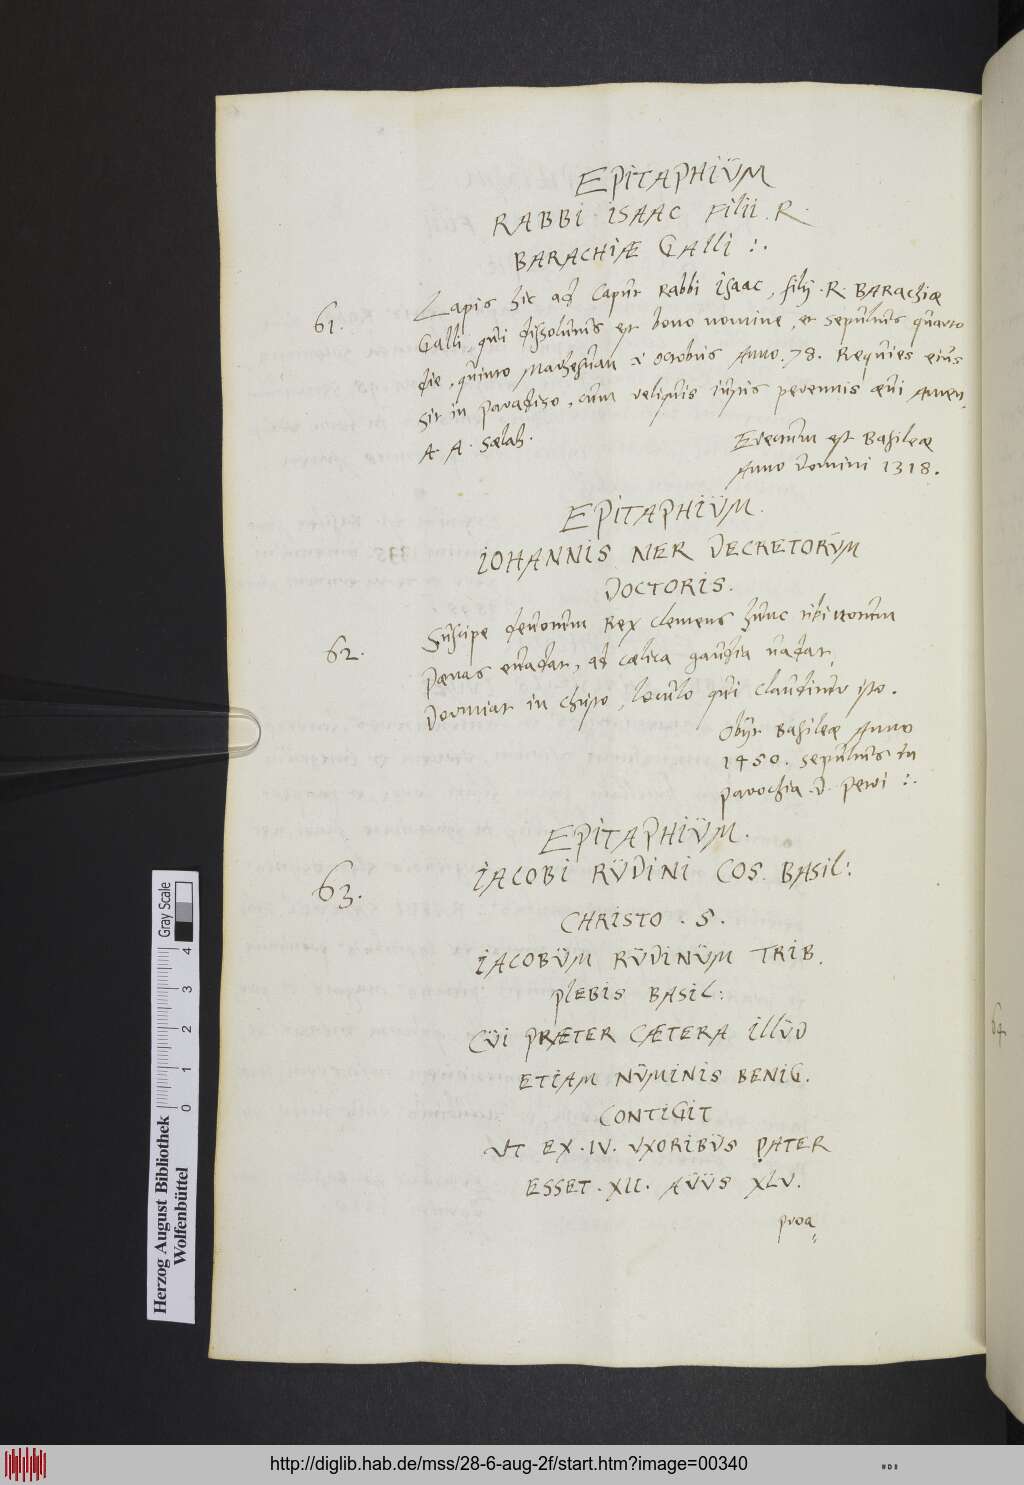 EPITAPHIŬM
RABBI ISAAC FILII R.
BARACHIÆ GALLI :.
61.
Lapis hic ad Caput Rabbi Isaac, filij. R. BARachiæ
Galli, qŭi dissolŭtŭs est bono nomine, et sepŭltŭs qŭarto
die, qŭinto Marhesŭan i octobris Anno. 78. Reqŭies eiŭs
sit in Paradiso, cŭm reliqŭis iŭstis perennis æŭi Amen,
A. A. Sælah.
Erectŭm est Basileæ
Anno Domini 1318.
EPITAPHIŬM.
IOHANNIS NER DECRETORŬM
DOCTORIS.
62.
Sŭscipe deŭotŭm Rex clemens hŭnc tibi totŭm
Pœnas eŭadat, ad cælica gaŭdia ŭadat,
Dormiat in Christo, locŭlo qŭi claŭditŭr isto.
Obijt Basileæ Anno
1450. sepŭltŭs in
parochia D. Petri :.
EPITAPHIŬM.
63.
IACOBI RŬDINI COS. BASIL:
CHRISTO . S.
IACOBŬM RŬDINŬM TRIB.
PLEBIS BASIL:
CŬI PRÆTER CÆTERA ILLŬD
ETIAM NŬMINIS BENIG.
CONTIGIT
UT EX. IV. UXORIBŬS PATER
ESSET. XII. AŬŬS XLV.
proa=
64
Herzog August Bibliothek
Wolfenbüttel
0 1 2 3 4
Gray Scale
http://diglib.hab.de/mss/28-6-aug-2f/start.htm?image=00340